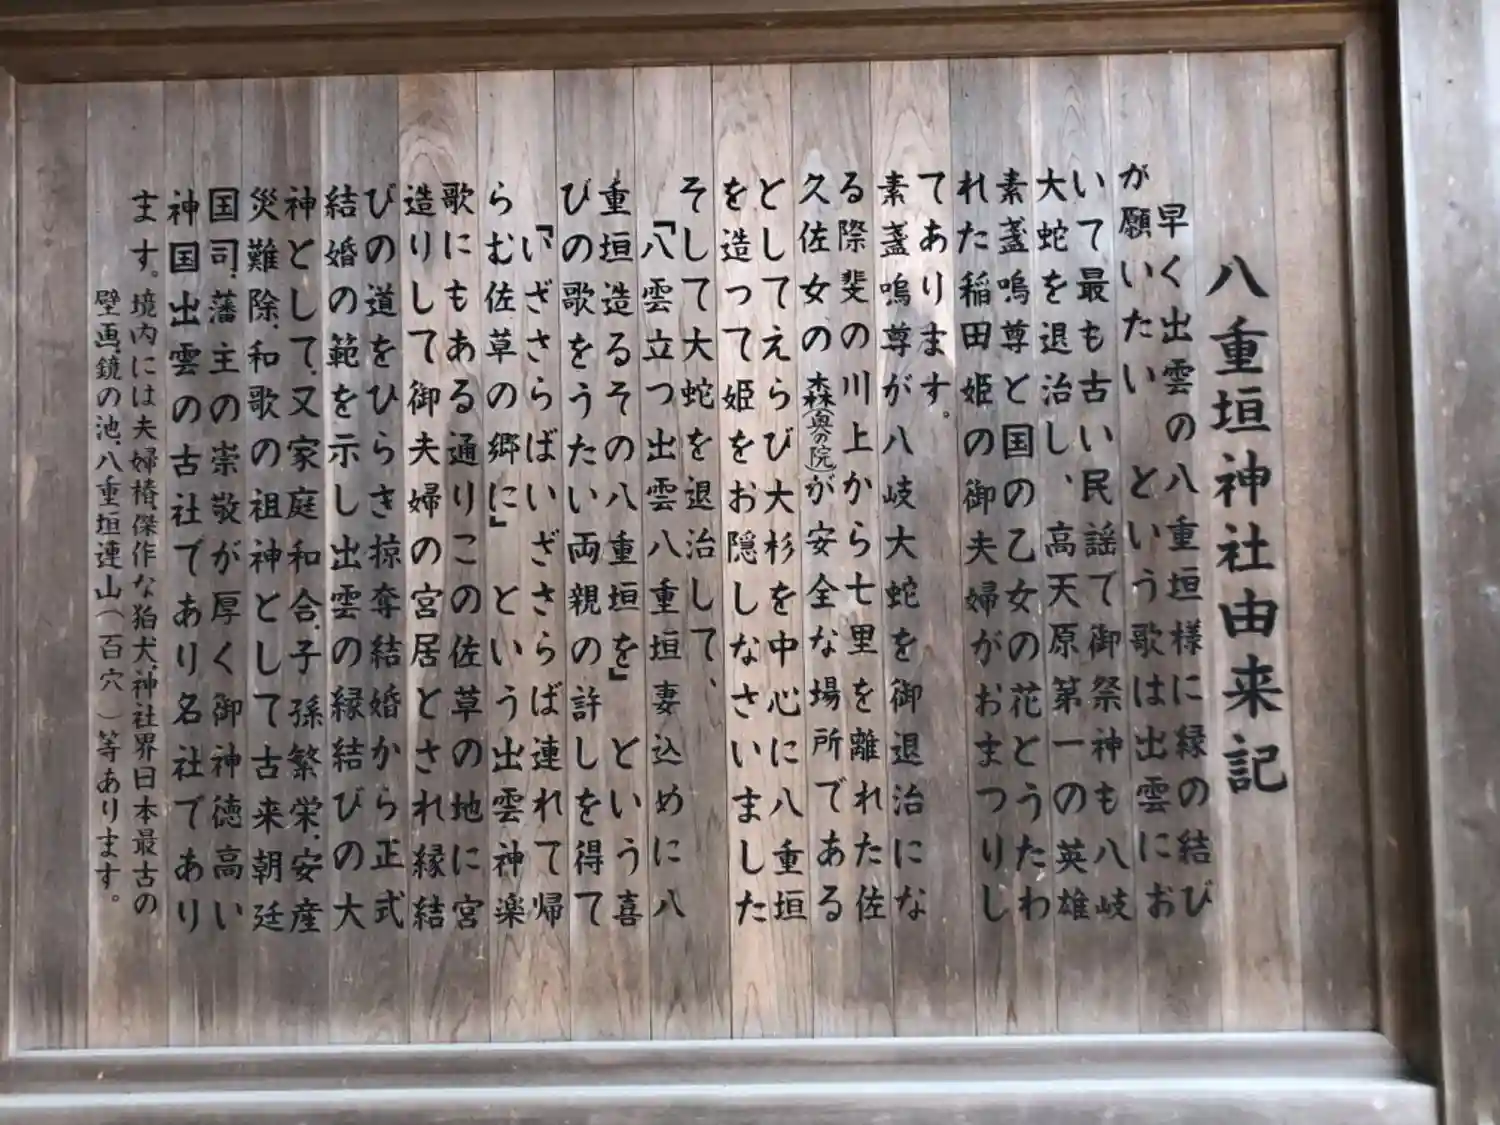 八重垣神社由来記
早く出雲の八重垣様に縁の結び
が願いたい　という歌は出雲にお
いて最も古い民謡で御祭神も八岐
大蛇を退治し、高天原第一の英雄
素盞嗚尊と国の乙女の花とうたわ
れた稲田姫の御夫婦がおまつりし
てあります。
素盞嗚尊が八岐大蛇を御退治にな
る際斐の川上から七里を離れた佐
久佐女の森(奥の院)が安全な場所である
としてえらび大杉を中心に八重垣
を造って姫をお隠しなさいました
そして大蛇を退治して、
「八雲立つ出雲八重垣妻込めに八
重垣造るその八重垣を」という喜
びの歌をうたい両親の許しを得て
「いざさらばいざさらば連れて帰
らむ佐草の郷に」という出雲神楽
歌にもある通りこの佐草の地に宮
造りして御夫婦の宮居とされ縁結
びの道をひらき掠奪結婚から正式
結婚の範を示し出雲の縁結びの大
神として、又家庭和合、子孫繁栄、安産
災難除、和歌の祖神として古来朝廷
国司、藩主の崇敬が厚く御神徳高い
神国出雲の古社であり名社であり
ます。境内には夫婦椿、傑作な狛犬、神社界日本最古の
壁画、鏡の池、八重垣連山(百穴)等あります。